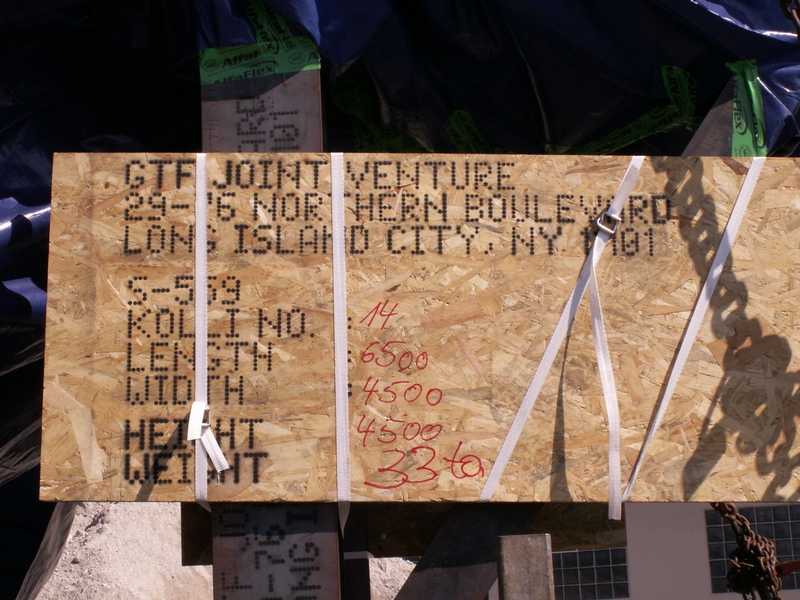 AlfaFlex
AlfaFlex
GTF JOINT VENTURE
29-76 NORTHERN BOULEVARD
LONG ISLAND CITY, NY
S-559
KOLLI NO. : 14
LENGTH : 6500
WIDTH : 4500
HEIGHT 4500
WEIGHT 33 to